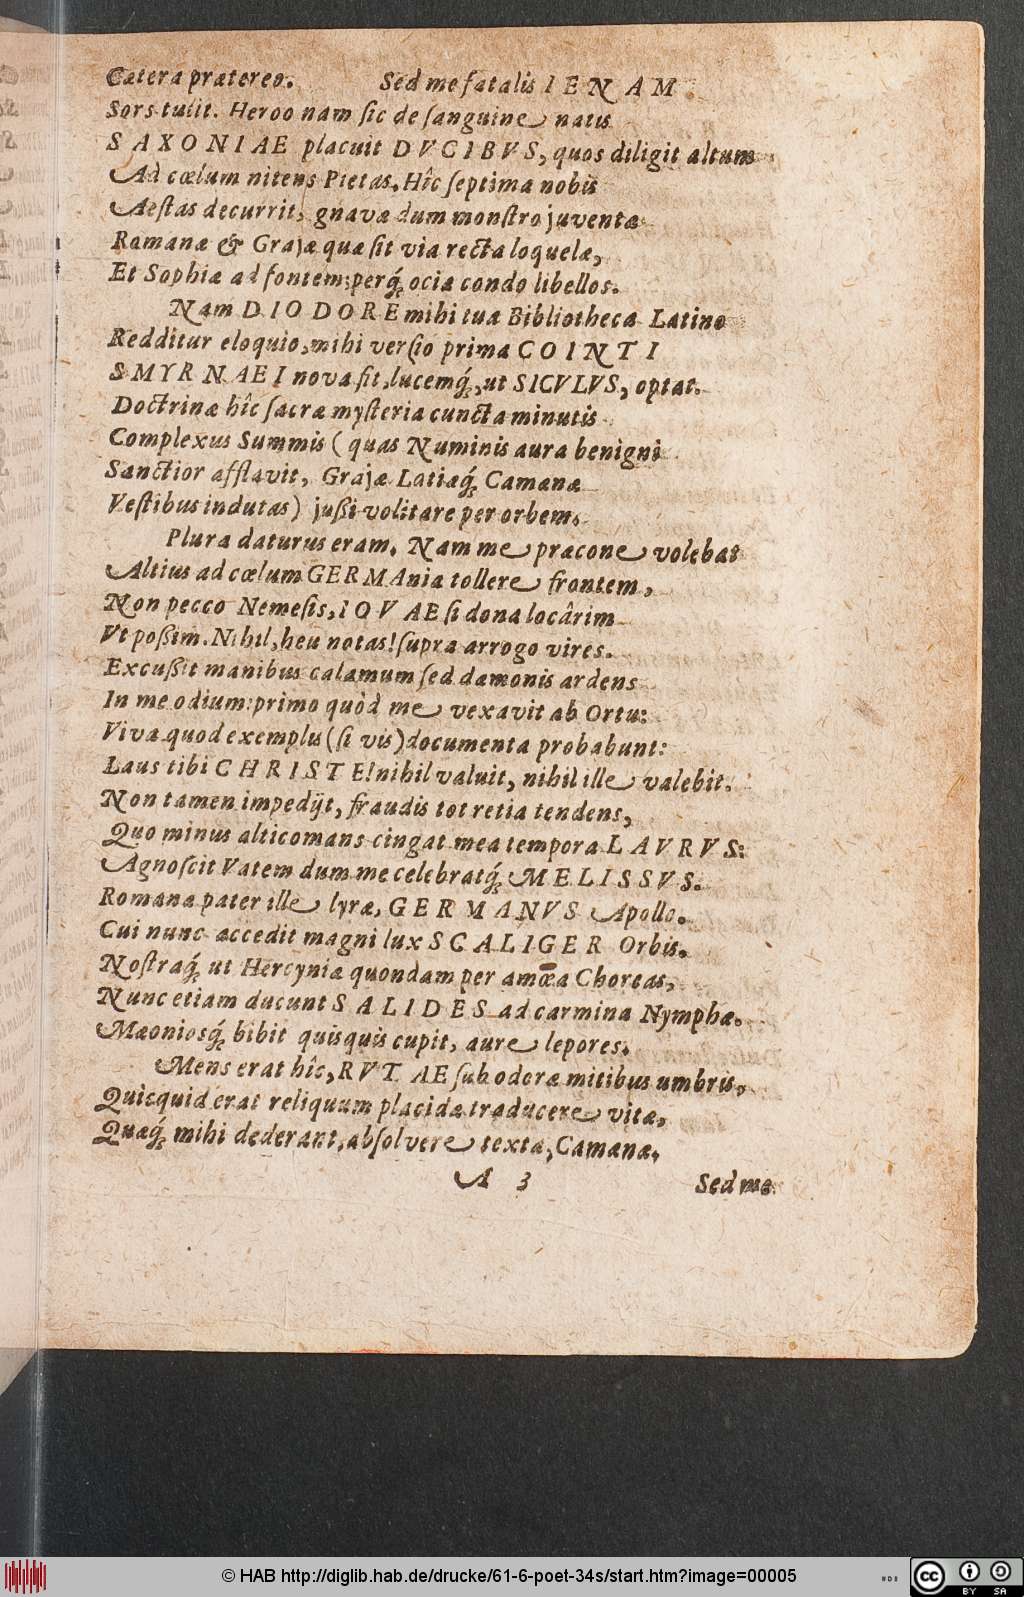 Cætera prætereo. Sed me fatalis IENAM
Sors tulit. Heroo nam sic de sanguine natis
SAXONIAE placuit DVCIBVS, quos diligit altum
Ad cœlum nitens Pietas. Hîc septima nobis
Aestas decurrit, gnavæ dum monstro juventæ
Romanæ & Grajæ quæ sit via recta loquelæ,
Et Sophiæ ad fontem: perq́; ocia condo libellos.
Nam DIODORE mihi tua Bibliotheca Latino
Redditur eloquio, mihi versio prima COINTI
SMYRNAEI nova fit, lucemq́;, ut SICVLVS, optat.
Doctrinæ hîc sacræ mysteria cuncta minutis
Complexus Summis ( quas Numinis aura benigni
Sanctior afflavit, Grajæ Latiæq́; Camænæ
Vestibus indutas) jußi volitare per orbem.
Plura daturus eram. Nam me præcone volebat
Altius ad cœlum GERMAnia tollere frontem,
Non pecco Nemesis, IOVAE si dona locârim
Vt poßim. Nihil, heu notas! supra arrogo vires.
Excußit manibus calamum sed dæmonis ardens
In me odium: primo quòd me vexavit ab Ortu:
Viva quod exemplis (si vis) documenta probabunt:
Laus tibi CHRISTE! nihil valuit, nihil ille valebit.
Non tamen impedijt, fraudis tot retia tendens,
Quo minus alticomans cingat mea tempora LAVRVS:
Agnoscit Vatem dum me celebratq́; MELISSVS.
Romanæ pater ille lyræ, GERMANVS Apollo.
Cui nunc accedit magni lux SCALIGER Orbis.
Nostraq́; ut Hercyniæ quondam per amœa Choreas,
Nunc etiam ducunt SALIDES ad carmina Nymphæ.
Mæoniosq́; bibit quisquis cupit, aure lepores.
Mens erat hîc, RVTAE sub odoræ mitibus umbris,
Quicquid erat reliquum placidæ traducere vitæ,
Quæq́; mihi dederant, absolvere texta, Camænæ.
A 3 Sed me
© HAB http://diglib.hab.de/drucke/61-6-poet-34s/start.htm?image=00005
cc BY SA